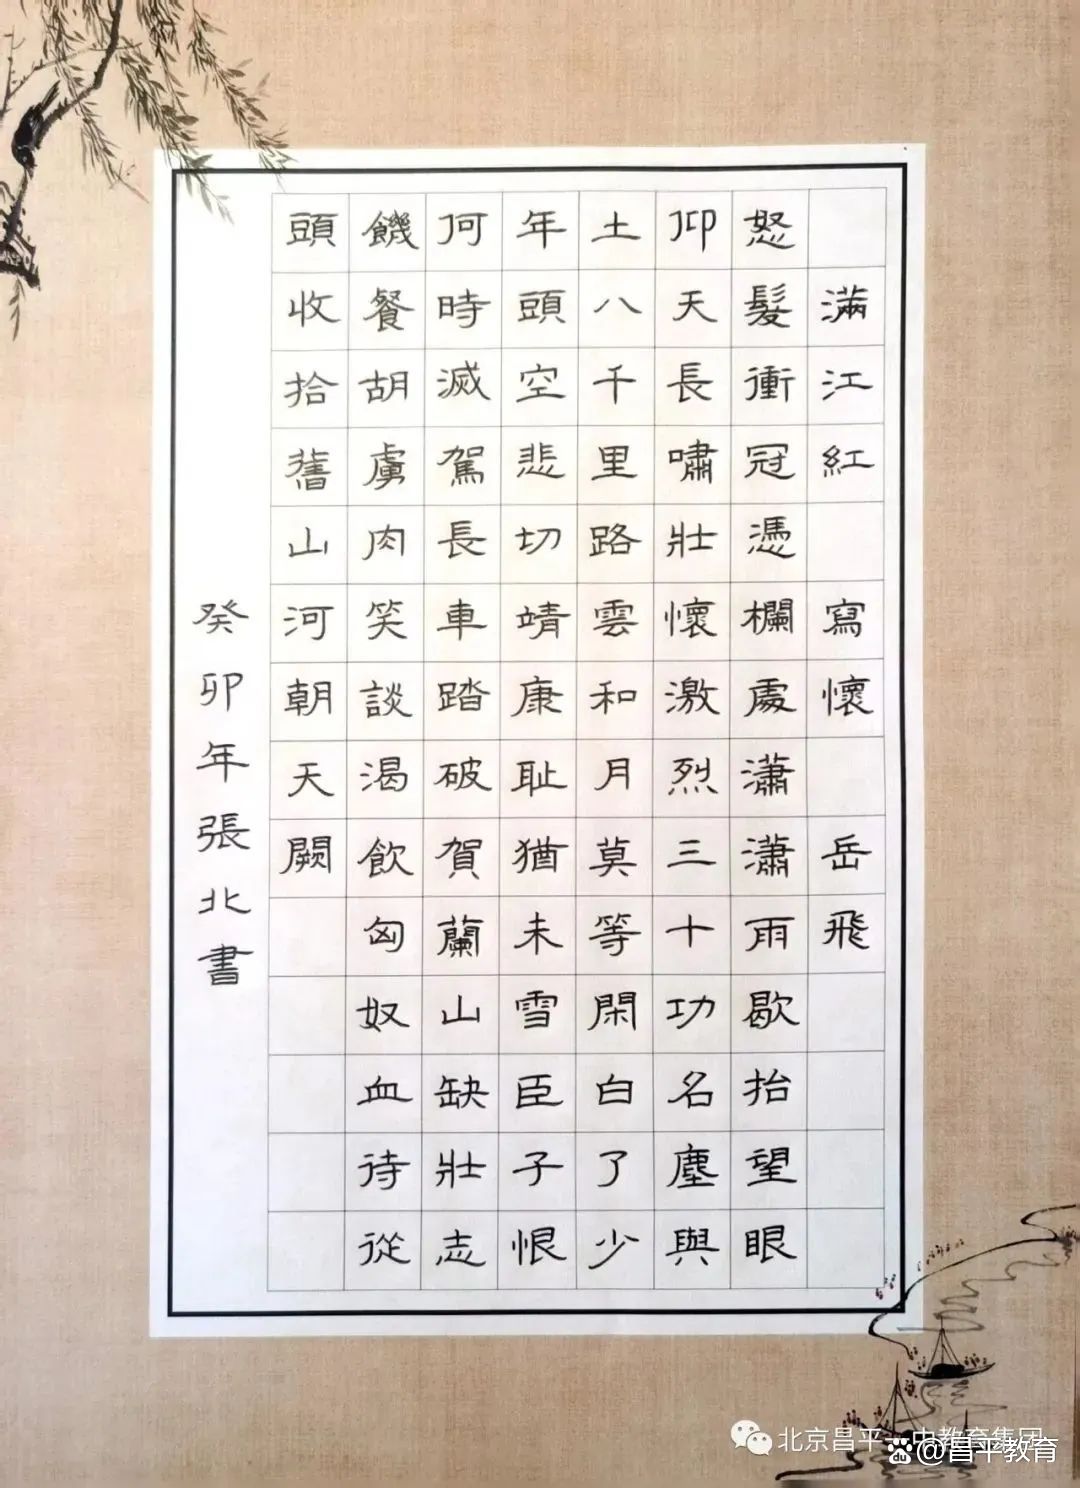 滿江紅 寫懷 岳飛
怒髮衝冠憑欄處瀟瀟雨歇抬望眼
仰天長嘯壯懷激烈三十功名塵與
土八千里路雲和月莫等閑白了少
年頭空悲切靖康耻猶未雪臣子恨
何時滅駕長車踏破賀蘭山缺壯志
饑餐胡虜肉笑談渴飲匈奴血待從
頭收拾舊山河朝天闕
癸卯年張北書
北京昌平一中教育集团
@昌平教育